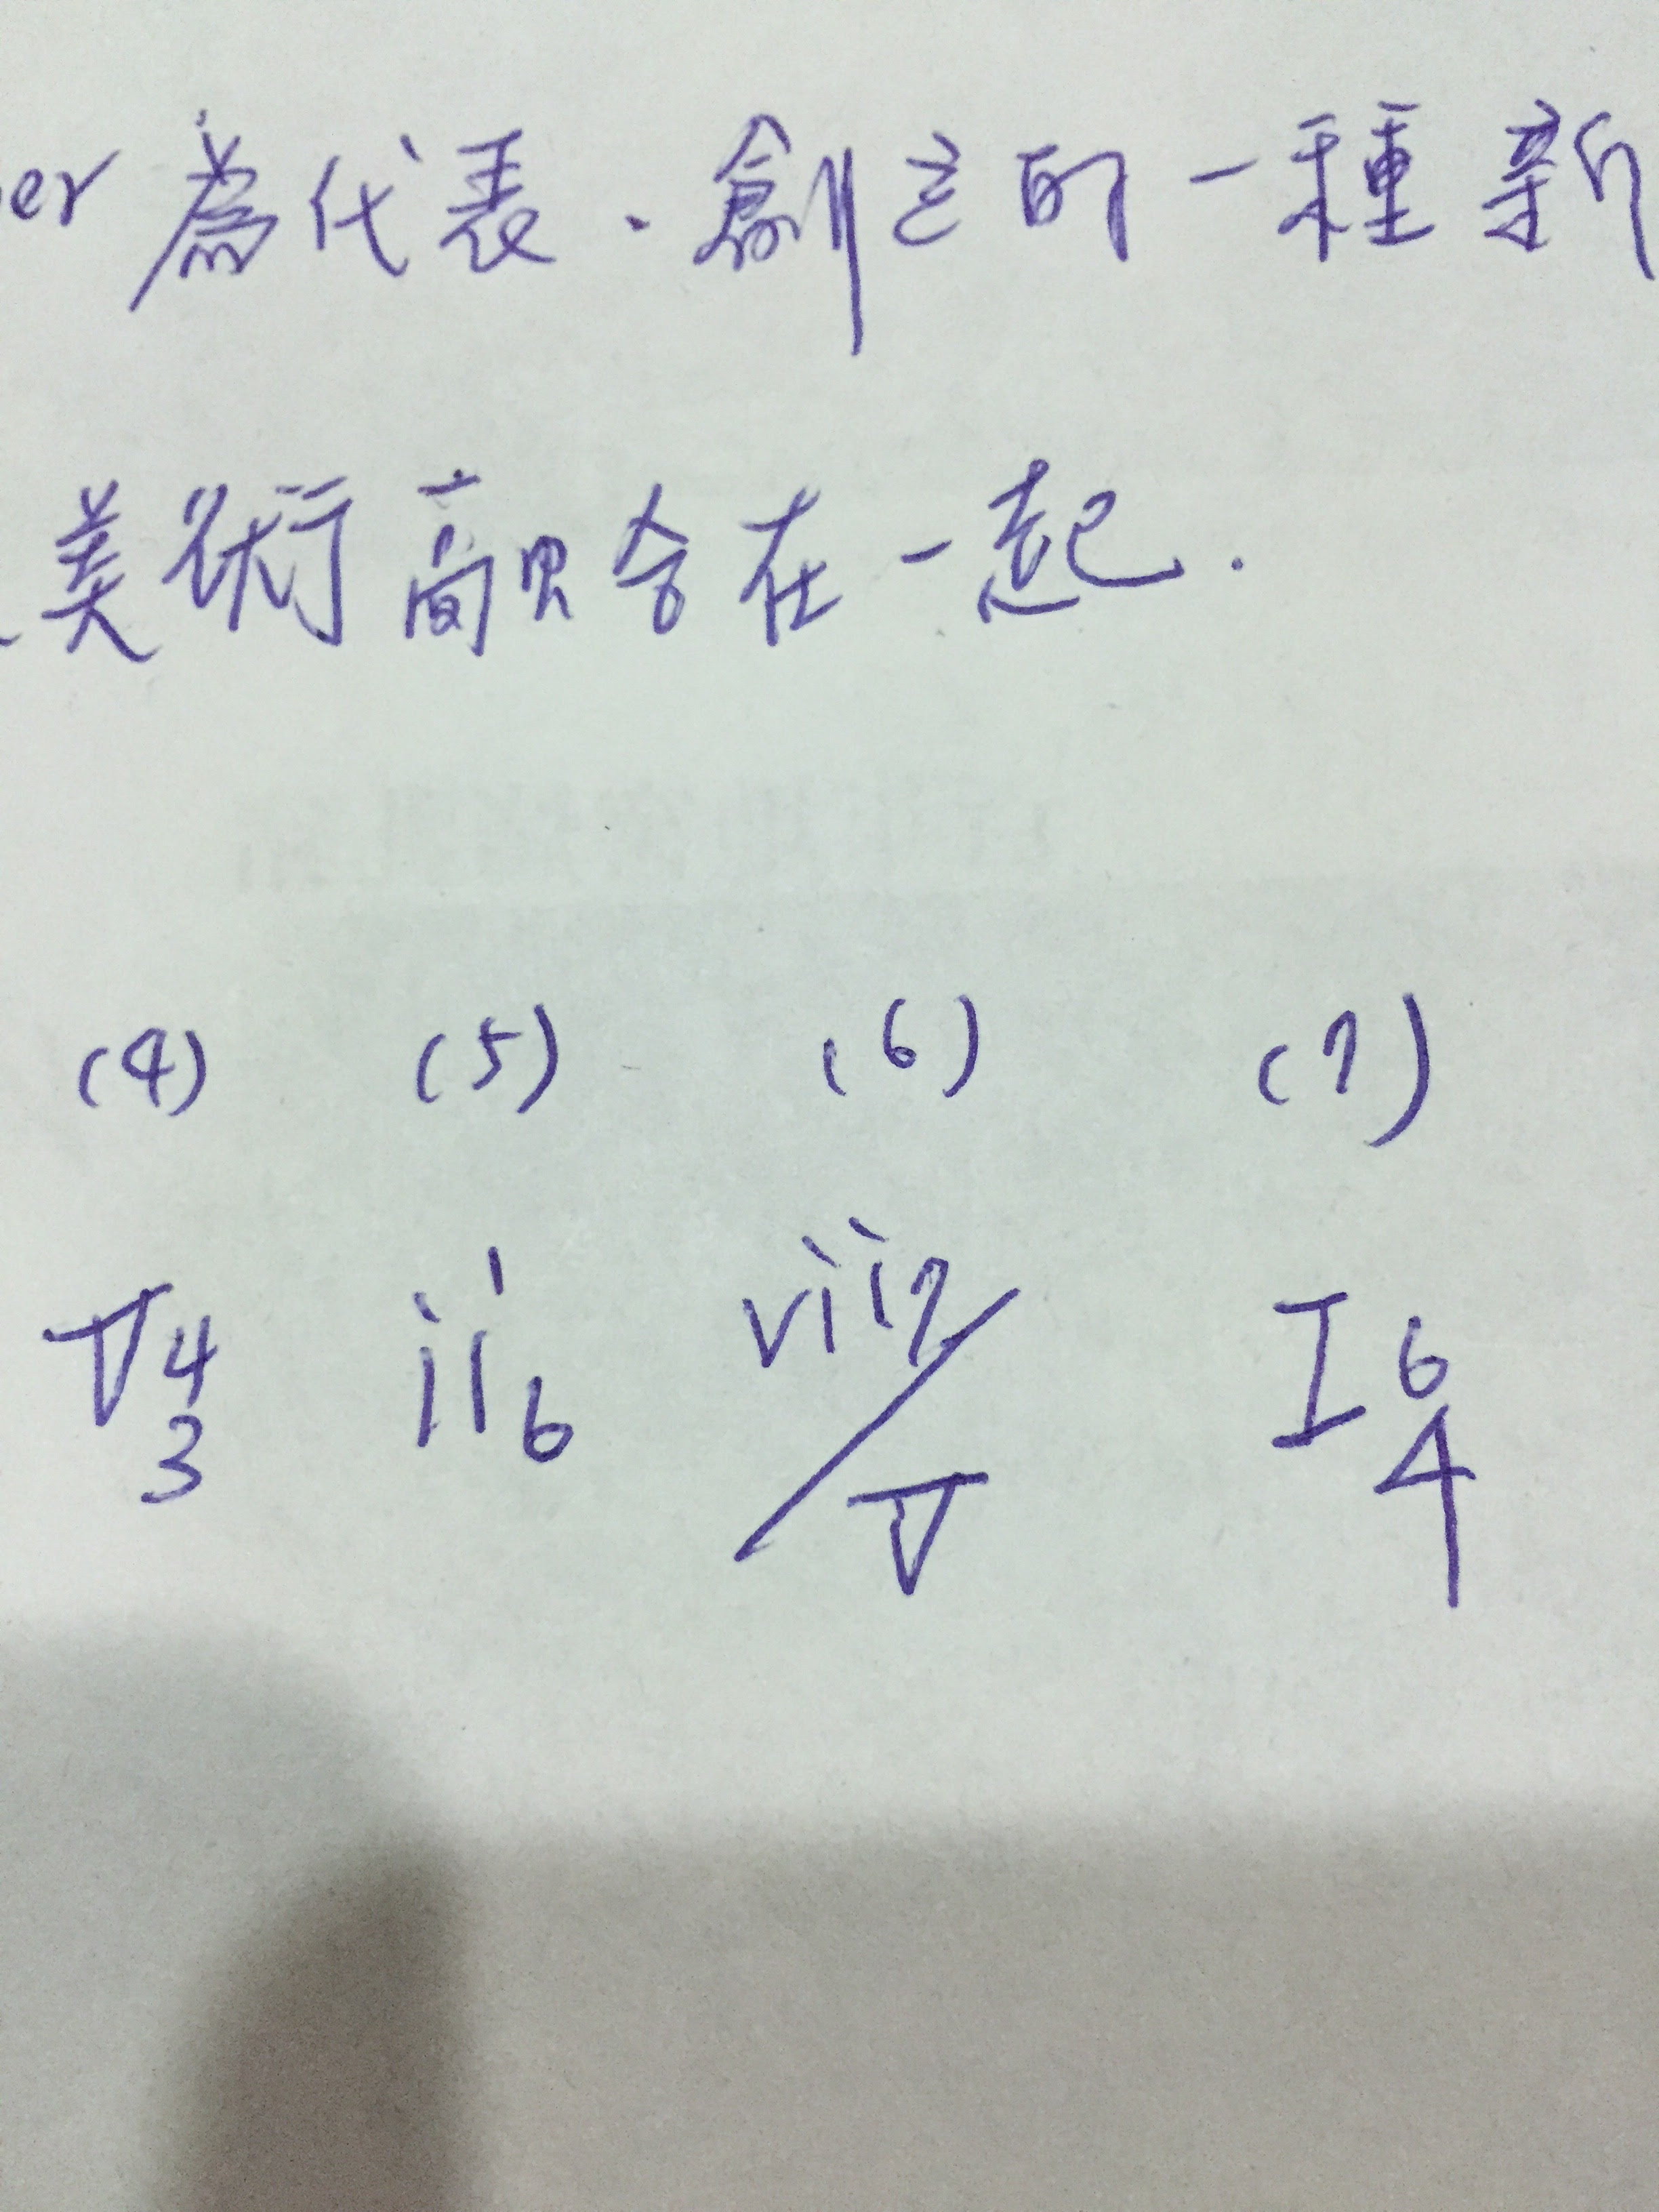 er 為代表、創立的一種新
、美術融合在一起.
(4) (5) (6) (7)
V4 3 ii6 vii7/V I6 4